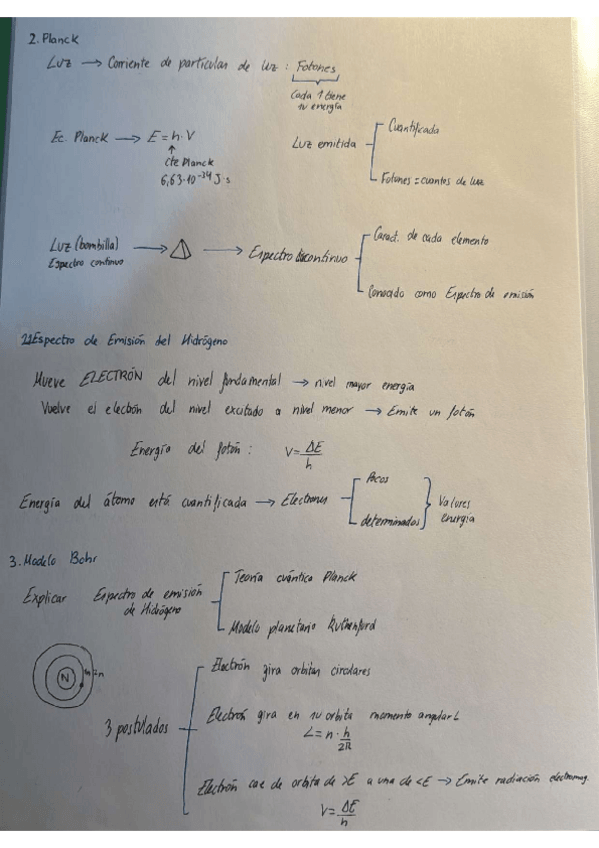 2. Planck
Luz → Corriente de partículas de luz : Fotones
Cada 1 tiene
su energía
Ec. Planck → E = h · V
↑
cte Planck
6,63·10⁻³⁴ J·s
Luz emitida
Cuantificada
Fotones = cuantos de luz
Luz (bombilla)
Espectro continuo
→ → Espectro discontinuo
Caract. de cada elemento
Conocido como Espectro de emisión
2.1 Espectro de Emisión del Hidrógeno
Mueve ELECTRÓN del nivel fundamental → nivel mayor energía
Vuelve el electrón del nivel excitado a nivel menor → Emite un fotón
Energía del fotón : V = ΔE/h
Energía del átomo está cuantificada → Electrones
Pocos
determinados
Valores
energía
3. Modelo Bohr
Explicar Espectro de emisión
de Hidrógeno
Teoría cuántica Planck
Modelo planetario Rutherford
N
3 postulados
Electrón gira orbitas circulares
Electrón gira en su orbita momento angular L
L = n · h/2R
Electrón cae de orbita de >E a una de <E → Emite radiación electromag.
V = ΔE/h